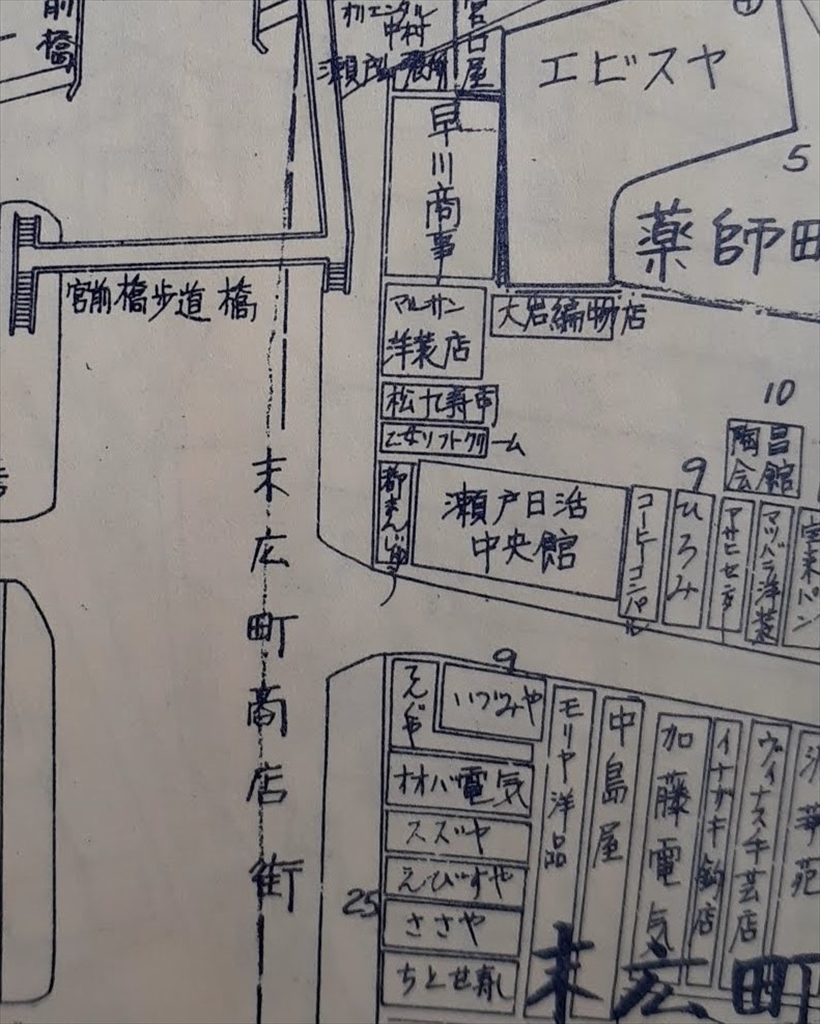 前橋
オリエンタル
中村
宮口屋
エビスヤ
早川商事
5
薬師田
宮前橋歩道橋
マルサン
洋装店
大岩編物店
松九寿司
乙女ソフトクリーム
10
陶昌
会館
9
都まんじゅう
瀬戸日活
中央館
コーヒーコンパル
ひろみ
アサヒセンター
マツバラ洋装
宝来パン
末広町商店街
9
いづみや
モリヤ洋品
中島屋
加藤電気
イナガキ鈎店
ヴィナス手芸店
オオバ電気
スズヤ
えびすや
25
ささや
ちとせ寿し
末広町